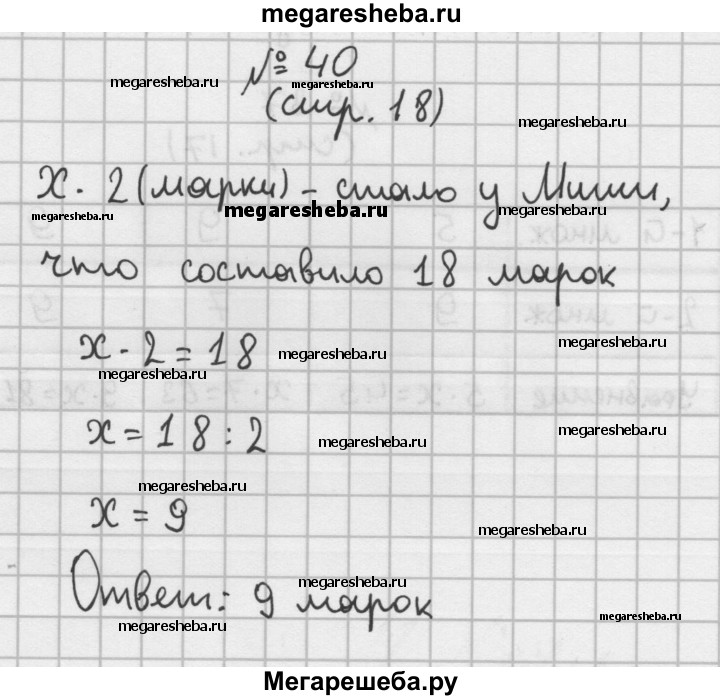 megaresheba.ru
№ 40
megaresheba.ru
megaresheba.ru
(стр. 18)
megaresheba.ru
х · 2 (марки) - стало у Миши,
megaresheba.ru
megaresheba.ru
megaresheba.ru
что составило 18 марок
х · 2 = 18
megaresheba.ru
megaresheba.ru
megaresheba.ru
х = 18 : 2
megaresheba.ru
megaresheba.ru
megaresheba.ru
х = 9
megaresheba.ru
Ответ: 9 марок
megaresheba.ru
megaresheba.ru
megaresheba.ru
Мегарешеба.ру